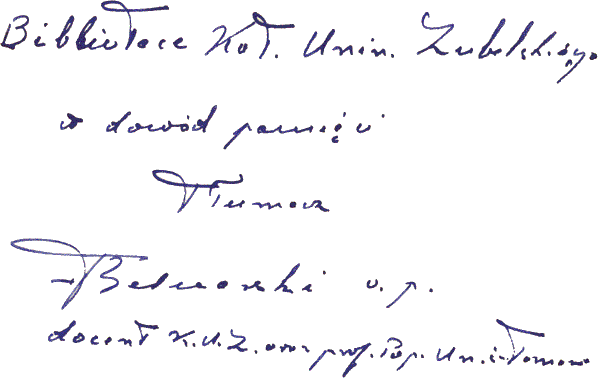 Bibliotece Kat. Uniw. Lubelskiego
w dowód pamięci
Tłumacz
Bednorski o. p.
docent K.U.L. oraz prof. Pap. Un. i Tomasz